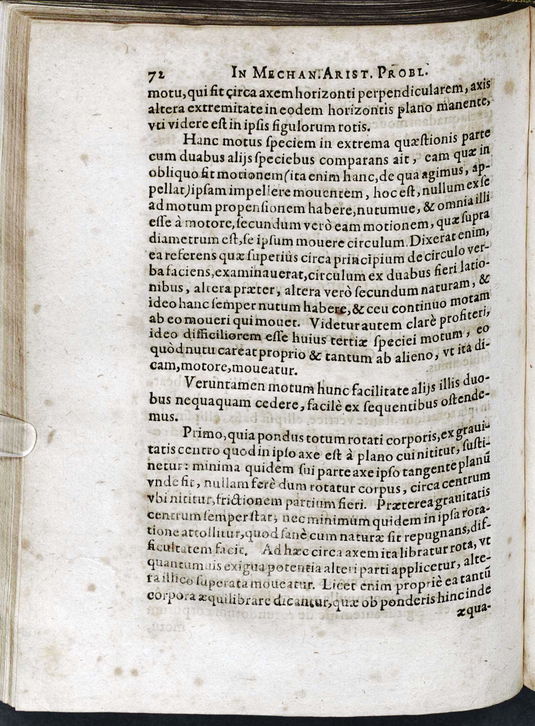 72 IN MECHAN. ARIST. PROBL.
motu, qui fit circa axem horizonti perpendicularem, axis
altera extremitate in eodem horizontis plano manente,
vti videre est in ipsis figulorum rotis.
Hanc motus speciem in extrema quæstionis parte
cum duabus alijs speciebus comparans ait, eam quæ in
obliquo fit motionem (ita enim hanc, de qua agimus, ap-
pellat) ipsam impellere mouentem, hoc est, nullum ex se
ad motum propensionem habere, nutumue, & omnia illi
esse à motore, secundum verò eam motionem, quæ supra
diametrum est, se ipsum mouere circulum. Dixerat enim,
ea referens quæ superiùs circa principium de circulo ver-
ba faciens, examinauerat, circulum ex duabus fieri latio-
nibus, altera præter, altera verò secundum naturam, &
ideo hanc semper nutum habere, & ceu continuo motam
ab eo moueri qui mouet. Videtur autem clarè profiteri,
ideo difficiliorem esse huius tertiæ speciei motum, eo
quòd nutu careat proprio & tantum ab alieno, vt ita di-
cam, motore, moueatur.
Veruntamen motum hunc facilitate alijs illis duo-
bus nequaquam cedere, facilè ex sequentibus ostende-
mus.
Primo, quia pondus totum rotati corporis, ex graui-
tatis centro quod in ipso axe est à plano cui nititur, susti-
netur: minima quidem sui parte axe ipso tangente planũ
vnde fit, nullam ferè dum rotatur corpus, circa centrum
vbi nititur, frictionem partium fieri. Præterea grauitatis
centrum semper stat, nec minimum quidem in ipsa rota-
tione attollitur, quod sanè cum naturæ sit repugnans, dif-
ficultatem facit. Ad hæc circa axem ita libratur rota, vt
quantumuis exigua potentia alteri parti applicetur, alte-
ra illico superata moueatur. Licet enim propriè ea tantũ
corpora æquilibrare dicantur, quæ ob ponderis hinc inde
æqua-